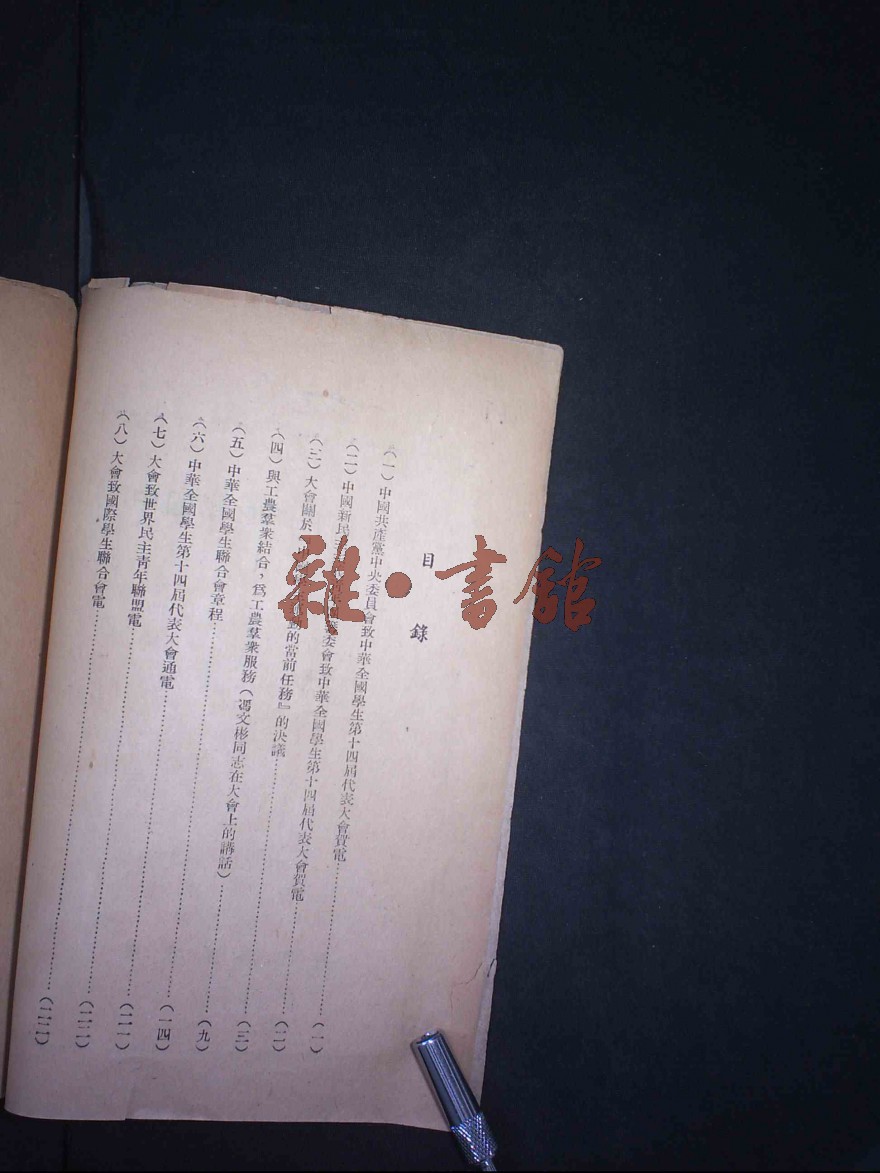 目錄
（一）中國共產黨中央委員會致中華全國學生第十四屆代表大會賀電……（一）
（二）中國新民主 委會致中華全國學生第十四屆代表大會賀電……（二）
（三）大會關於 動的當前任務』的決議……（三）
（四）與工農羣衆結合，爲工農羣衆服務（馮文彬同志在大會上的講話）……（九）
（五）中華全國學生聯合會章程……（一四）
（六）中華全國學生第十四屆代表大會通電……（二一）
（七）大會致世界民主青年聯盟電……（二二）
（八）大會致國際學生聯合會電……（二三）
雜·書館